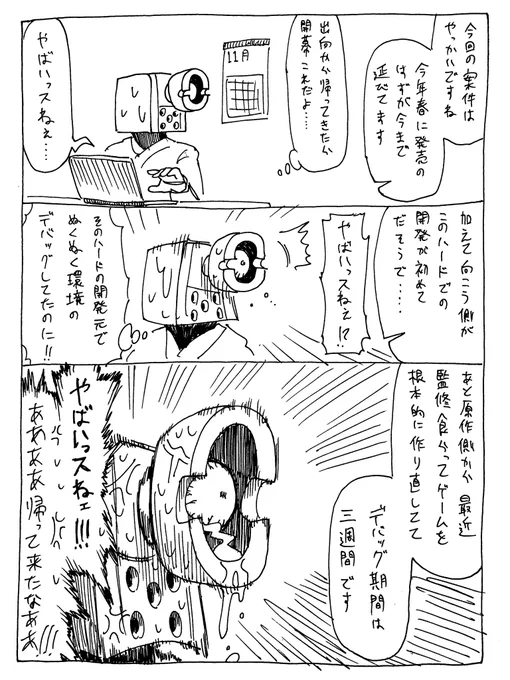 今回の案件は
やっかいですね
今年春に発売の
はずが今まで
延びてます
11月
出向から帰ってきたら
開幕これだよ……
やばいっスねぇ……
加えて向こう側が
このハードでの
開発が初めて
だそうで……
やばいっスねぇ!?
そのハードの開発元で
ぬくぬく環境の
デバッグしてたのに!!
あと原作側から最近
監修食らってゲームを
根本的に作り直してて
デバッグ期間は
三週間です
やばいっスねェ!!!
ああああ帰って来たなああ!!!